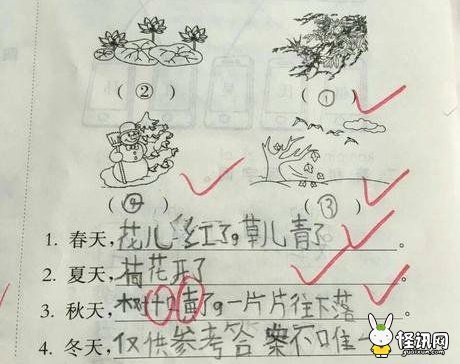 ( ② ) ( ① )
( ④ ) ( ③ )
1. 春天,花儿红了,草儿青了。
2. 夏天,荷花开了。
3. 秋天,树叶黄了,一片片往下落。
4. 冬天,仅供参考答案不唯一
怪讯网